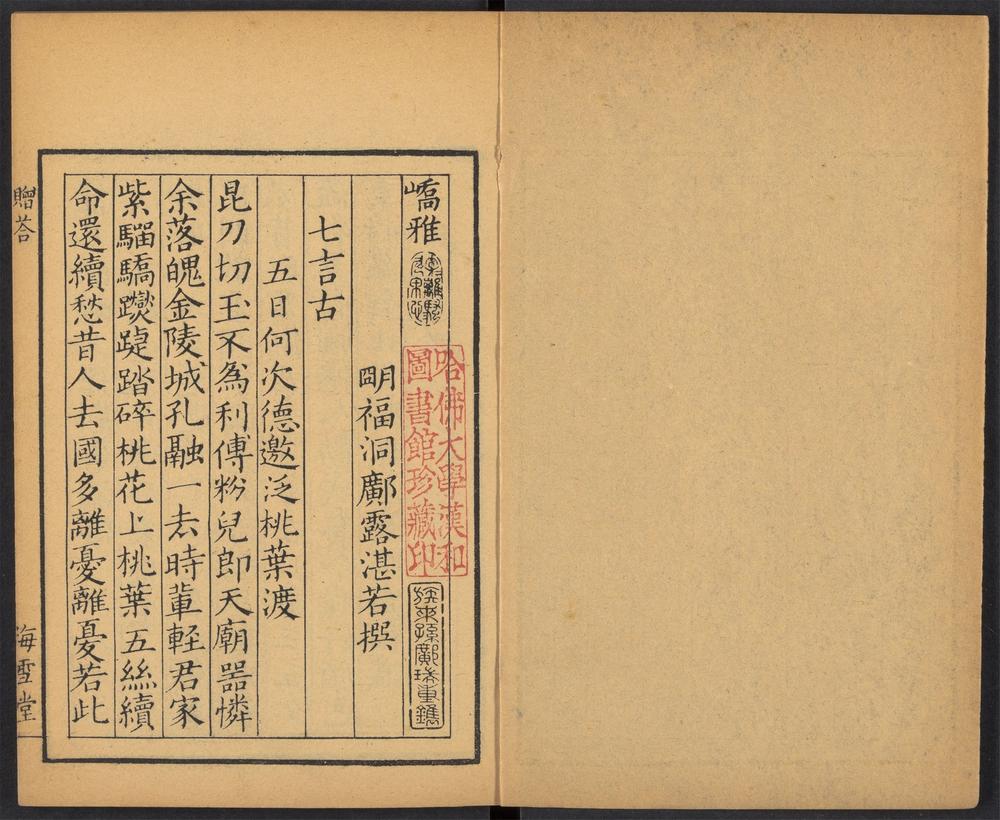 嶠雅
哈佛大學漢和
圖書館珍藏印
族來孫鄺珠重鐫
明福洞鄺露湛若撰
七言古
五日何次德邀泛桃葉渡
昆刀切玉不爲利傅粉兒郎天廟器憐
余落魄金陵城孔融一去時輩輕君家
紫騮驕躞踶踏碎桃花上桃葉五絲續
命還續愁昔人去國多離憂離憂若此
贈荅
海雪堂